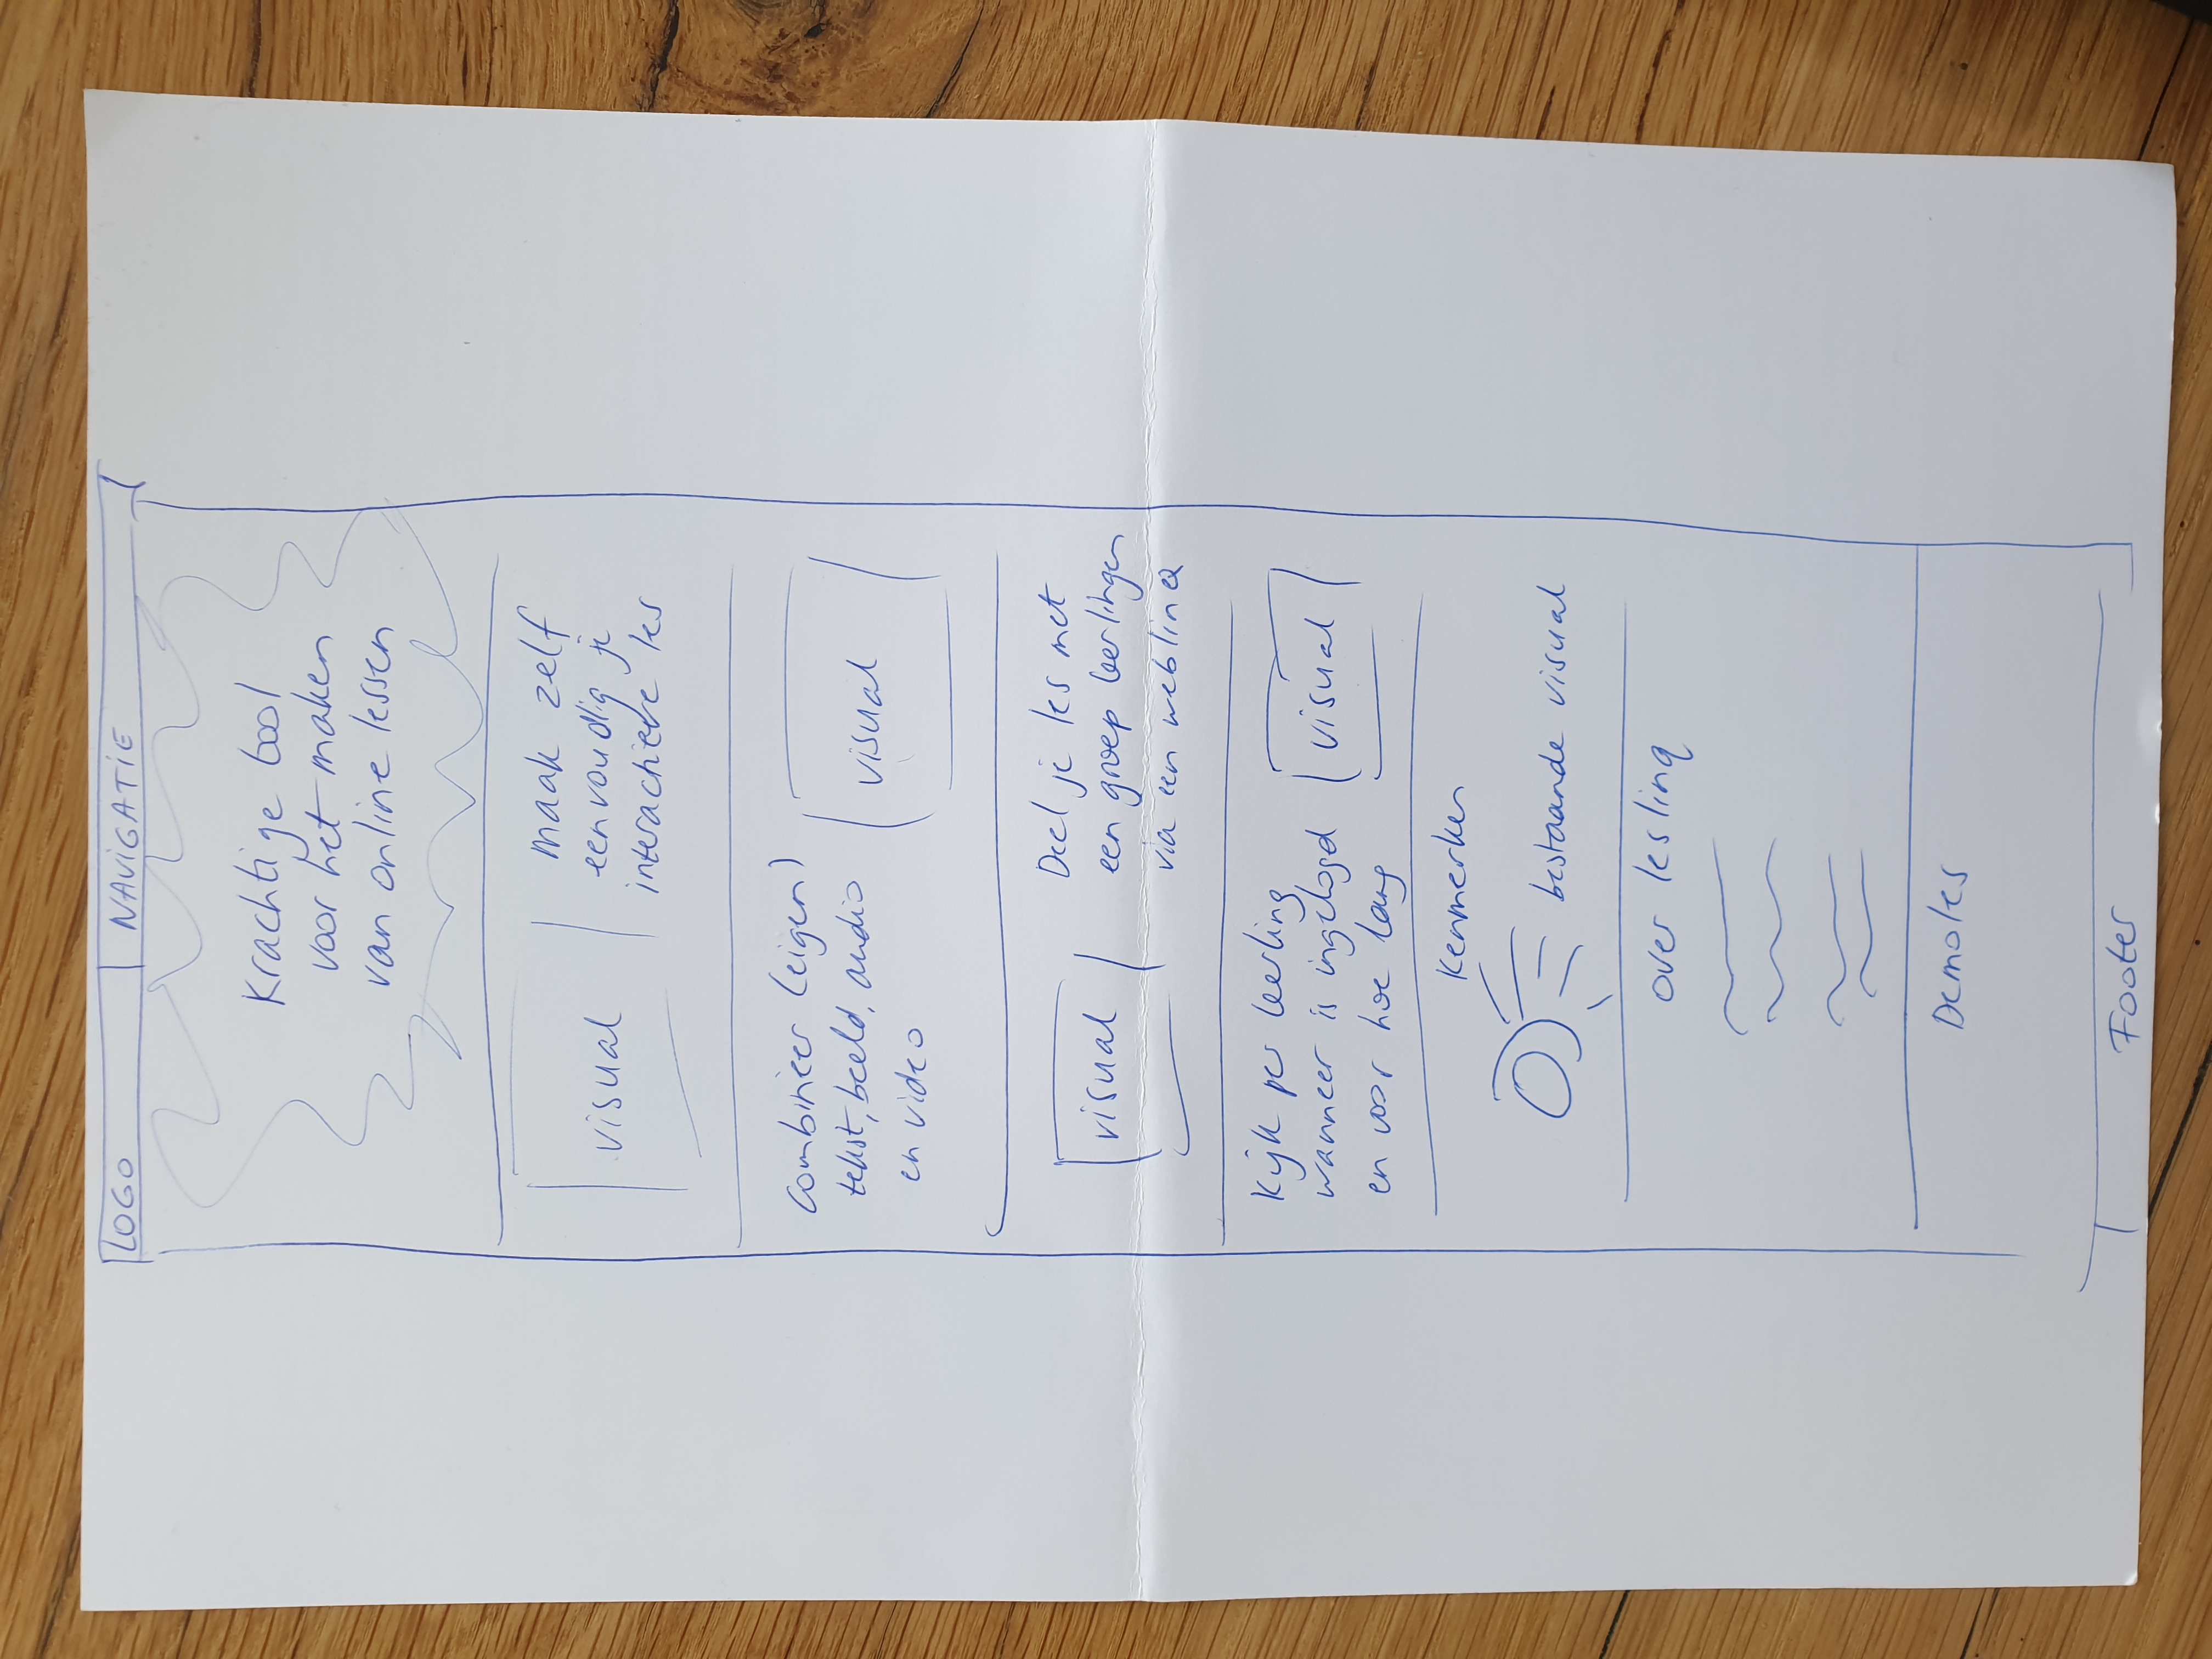 LOGO
NAVIGATIE
Krachtige tool
voor het maken
van online lessen
visual
maak zelf
eenvoudig je
interactieve les
Combineer (eigen)
tekst, beeld, audio
en video
visual
visual
Deel je les met
een groep leerlingen
via een weblinq
Kijk per leerling
wanneer is ingelogd
en voor hoe lang
visual
Kenmerken
bestaande visual
over leslinq
Demoles
Footer